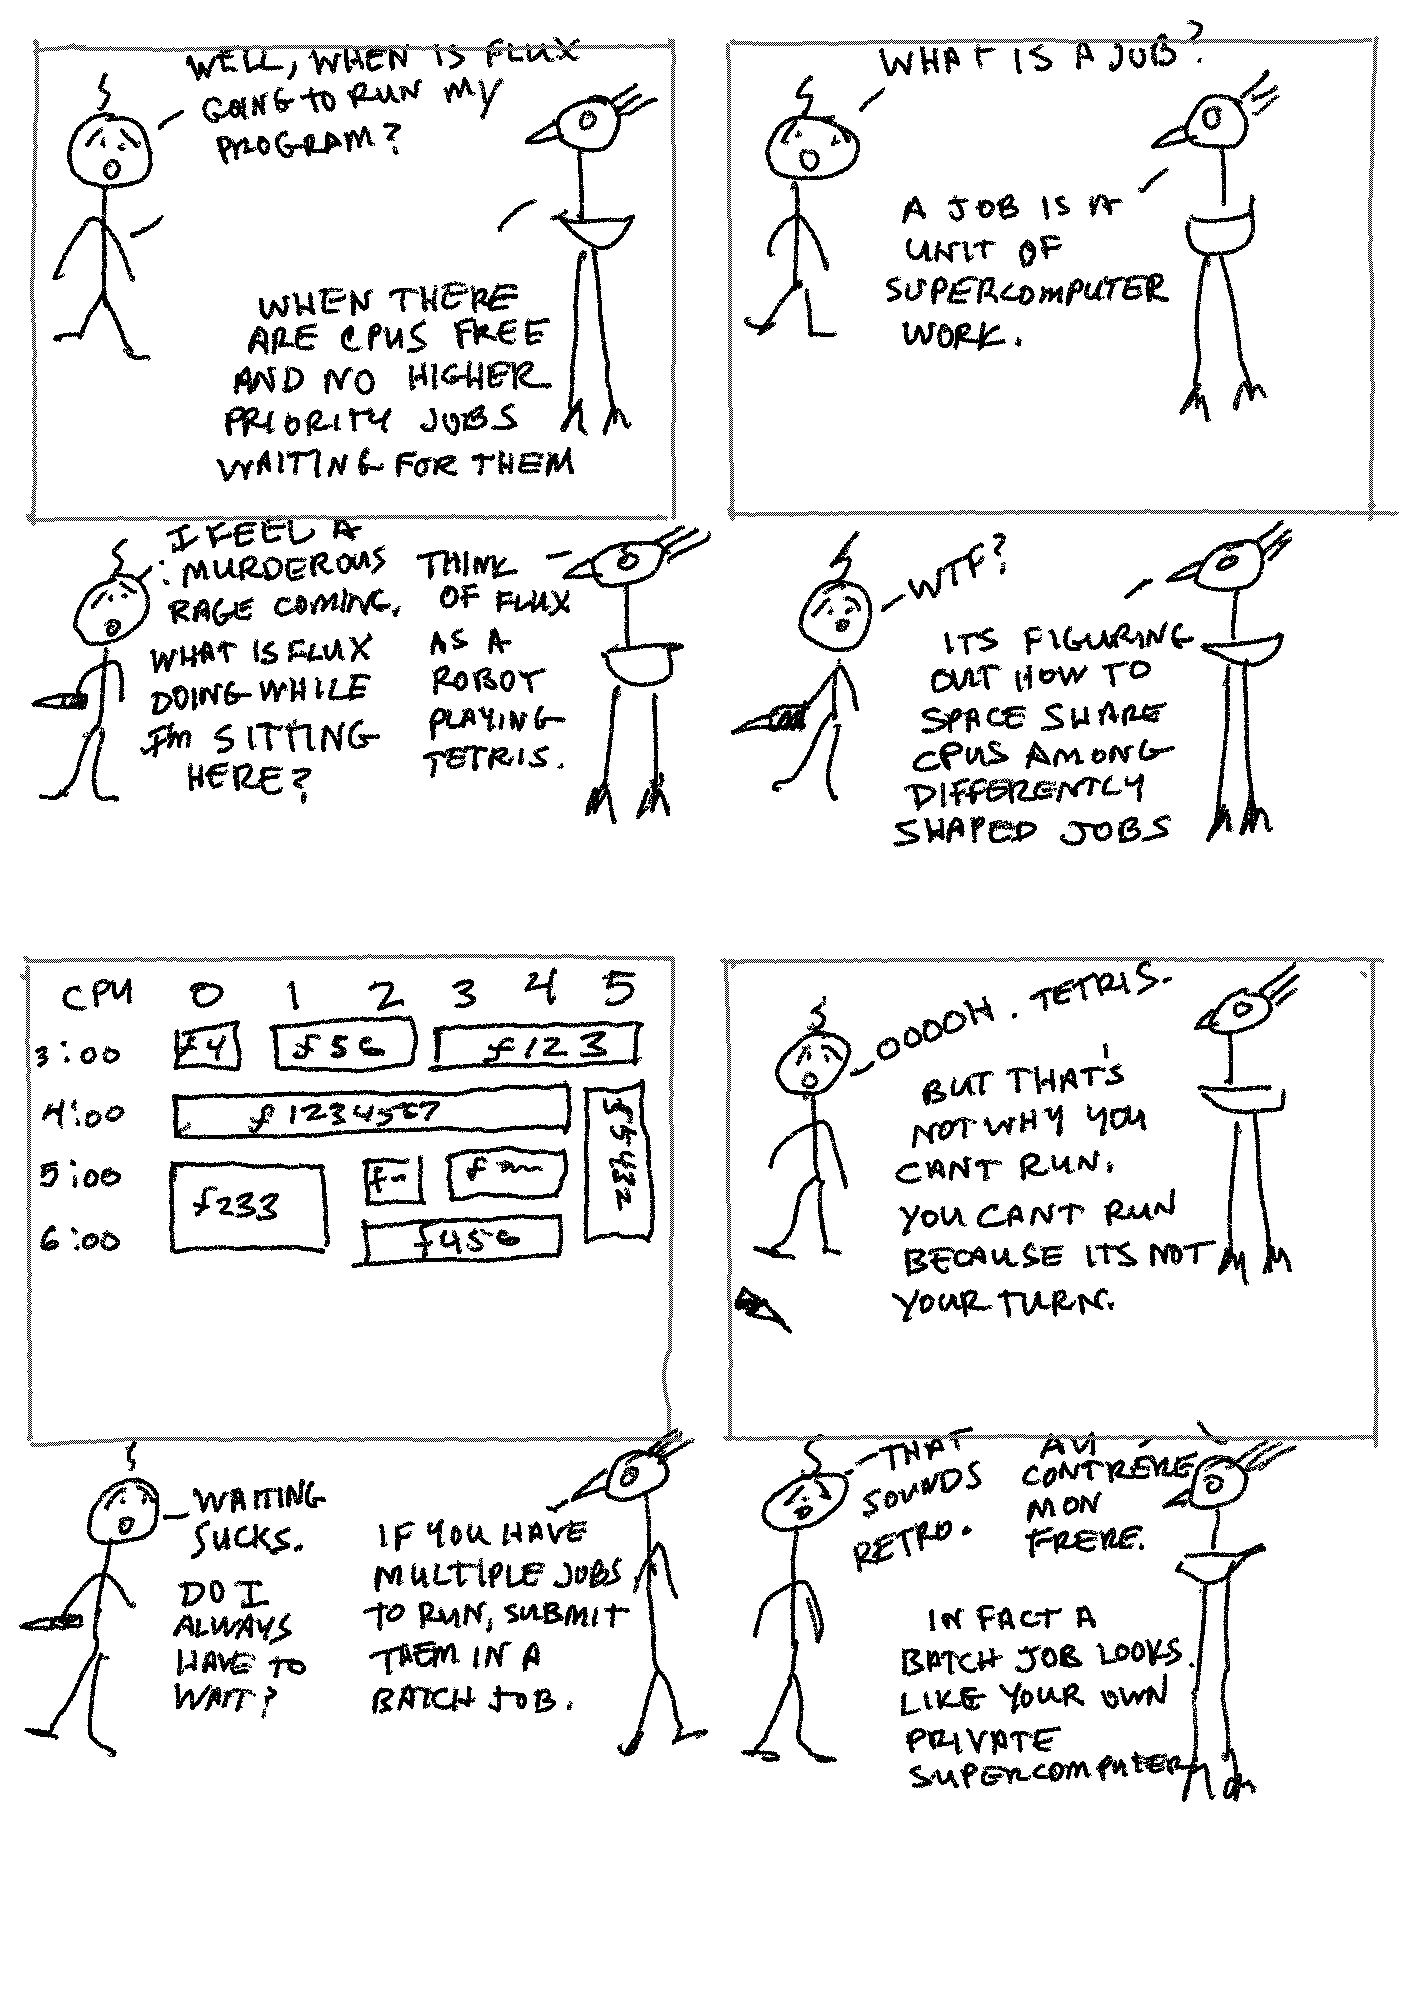 WELL, WHEN IS FLUX
GOING TO RUN MY
PROGRAM?
WHEN THERE
ARE CPUS FREE
AND NO HIGHER
PRIORITY JOBS
WAITING FOR THEM
WHAT IS A JOB?
A JOB IS A
UNIT OF
SUPERCOMPUTER
WORK.
I FEEL A
MURDEROUS
RAGE COMING.
WHAT IS FLUX
DOING WHILE
I'M SITTING
HERE?
THINK
OF FLUX
AS A
ROBOT
PLAYING
TETRIS.
WTF?
ITS FIGURING
OUT HOW TO
SPACE SHARE
CPUS AMONG
DIFFERENTLY
SHAPED JOBS
CPU 0 1 2 3 4 5
3:00 f4 f56 f123
4:00 f1234567
f5432
5:00
f233
6:00 f456
OOOOH. TETRIS.
BUT THAT'S
NOT WHY YOU
CANT RUN.
YOU CANT RUN
BECAUSE ITS NOT
YOUR TURN.
WAITING
SUCKS.
DO I
ALWAYS
HAVE TO
WAIT?
IF YOU HAVE
MULTIPLE JOBS
TO RUN, SUBMIT
THEM IN A
BATCH JOB.
THAT
SOUNDS
RETRO.
AU
CONTRÉRE
MON
FRERE.
IN FACT A
BATCH JOB LOOKS
LIKE YOUR OWN
PRIVATE
SUPERCOMPUTER